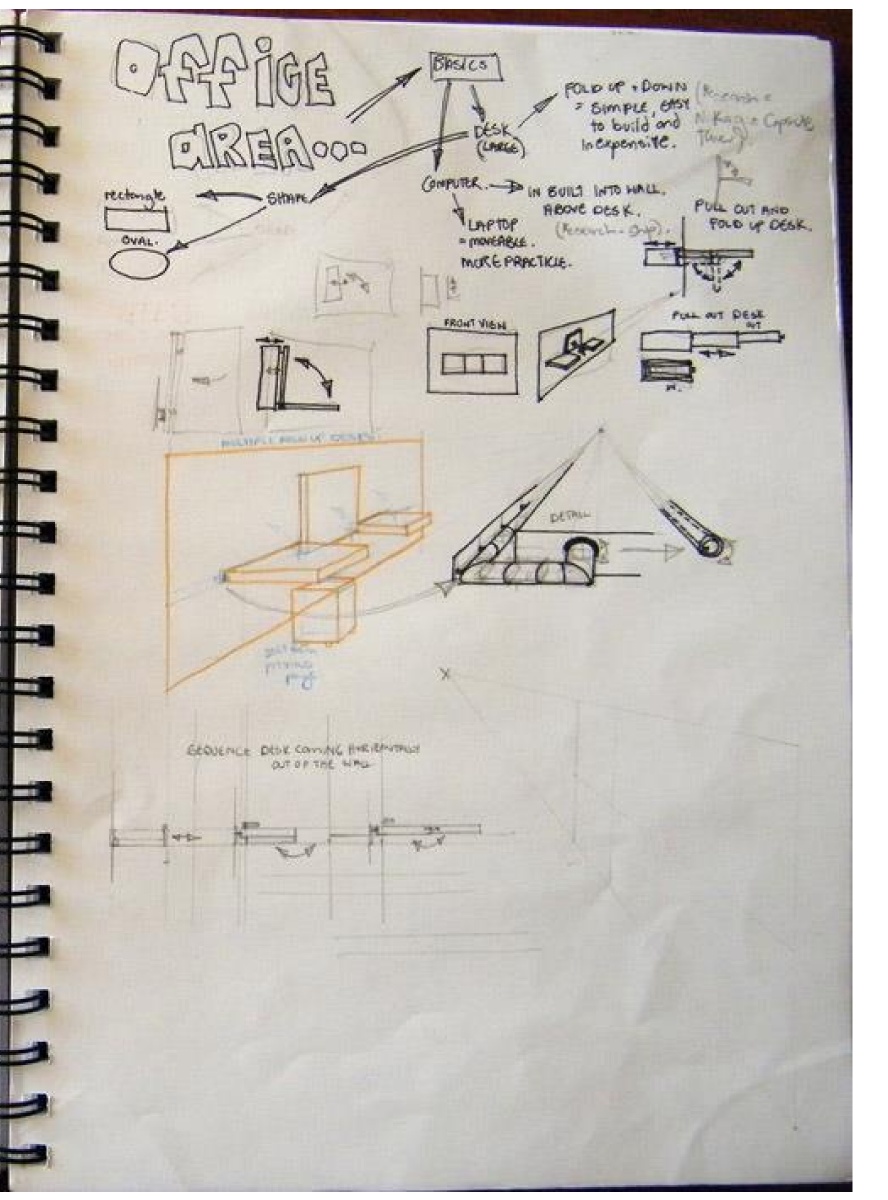 OFFICE
AREA...
BASICS
DESK
(LARGE)
FOLD UP + DOWN
= SIMPLE, EASY
to build and
Inexpensive.
(Research =
Capsule
COMPUTER.
IN BUILT INTO WALL.
ABOVE DESK.
(Research - ship).
LAPTOP
= MOVEABLE.
MORE PRACTICLE.
SHAPE
rectangle
OVAL.
PULL OUT AND
FOLD UP DESK.
FRONT VIEW
PULL OUT DESK
OUT
IN.
MULTIPLE FOLD UP DESKS.
DETAIL
X
SEQUENCE DESK COMING HORIZONTALLY
OUT OF THE WALL